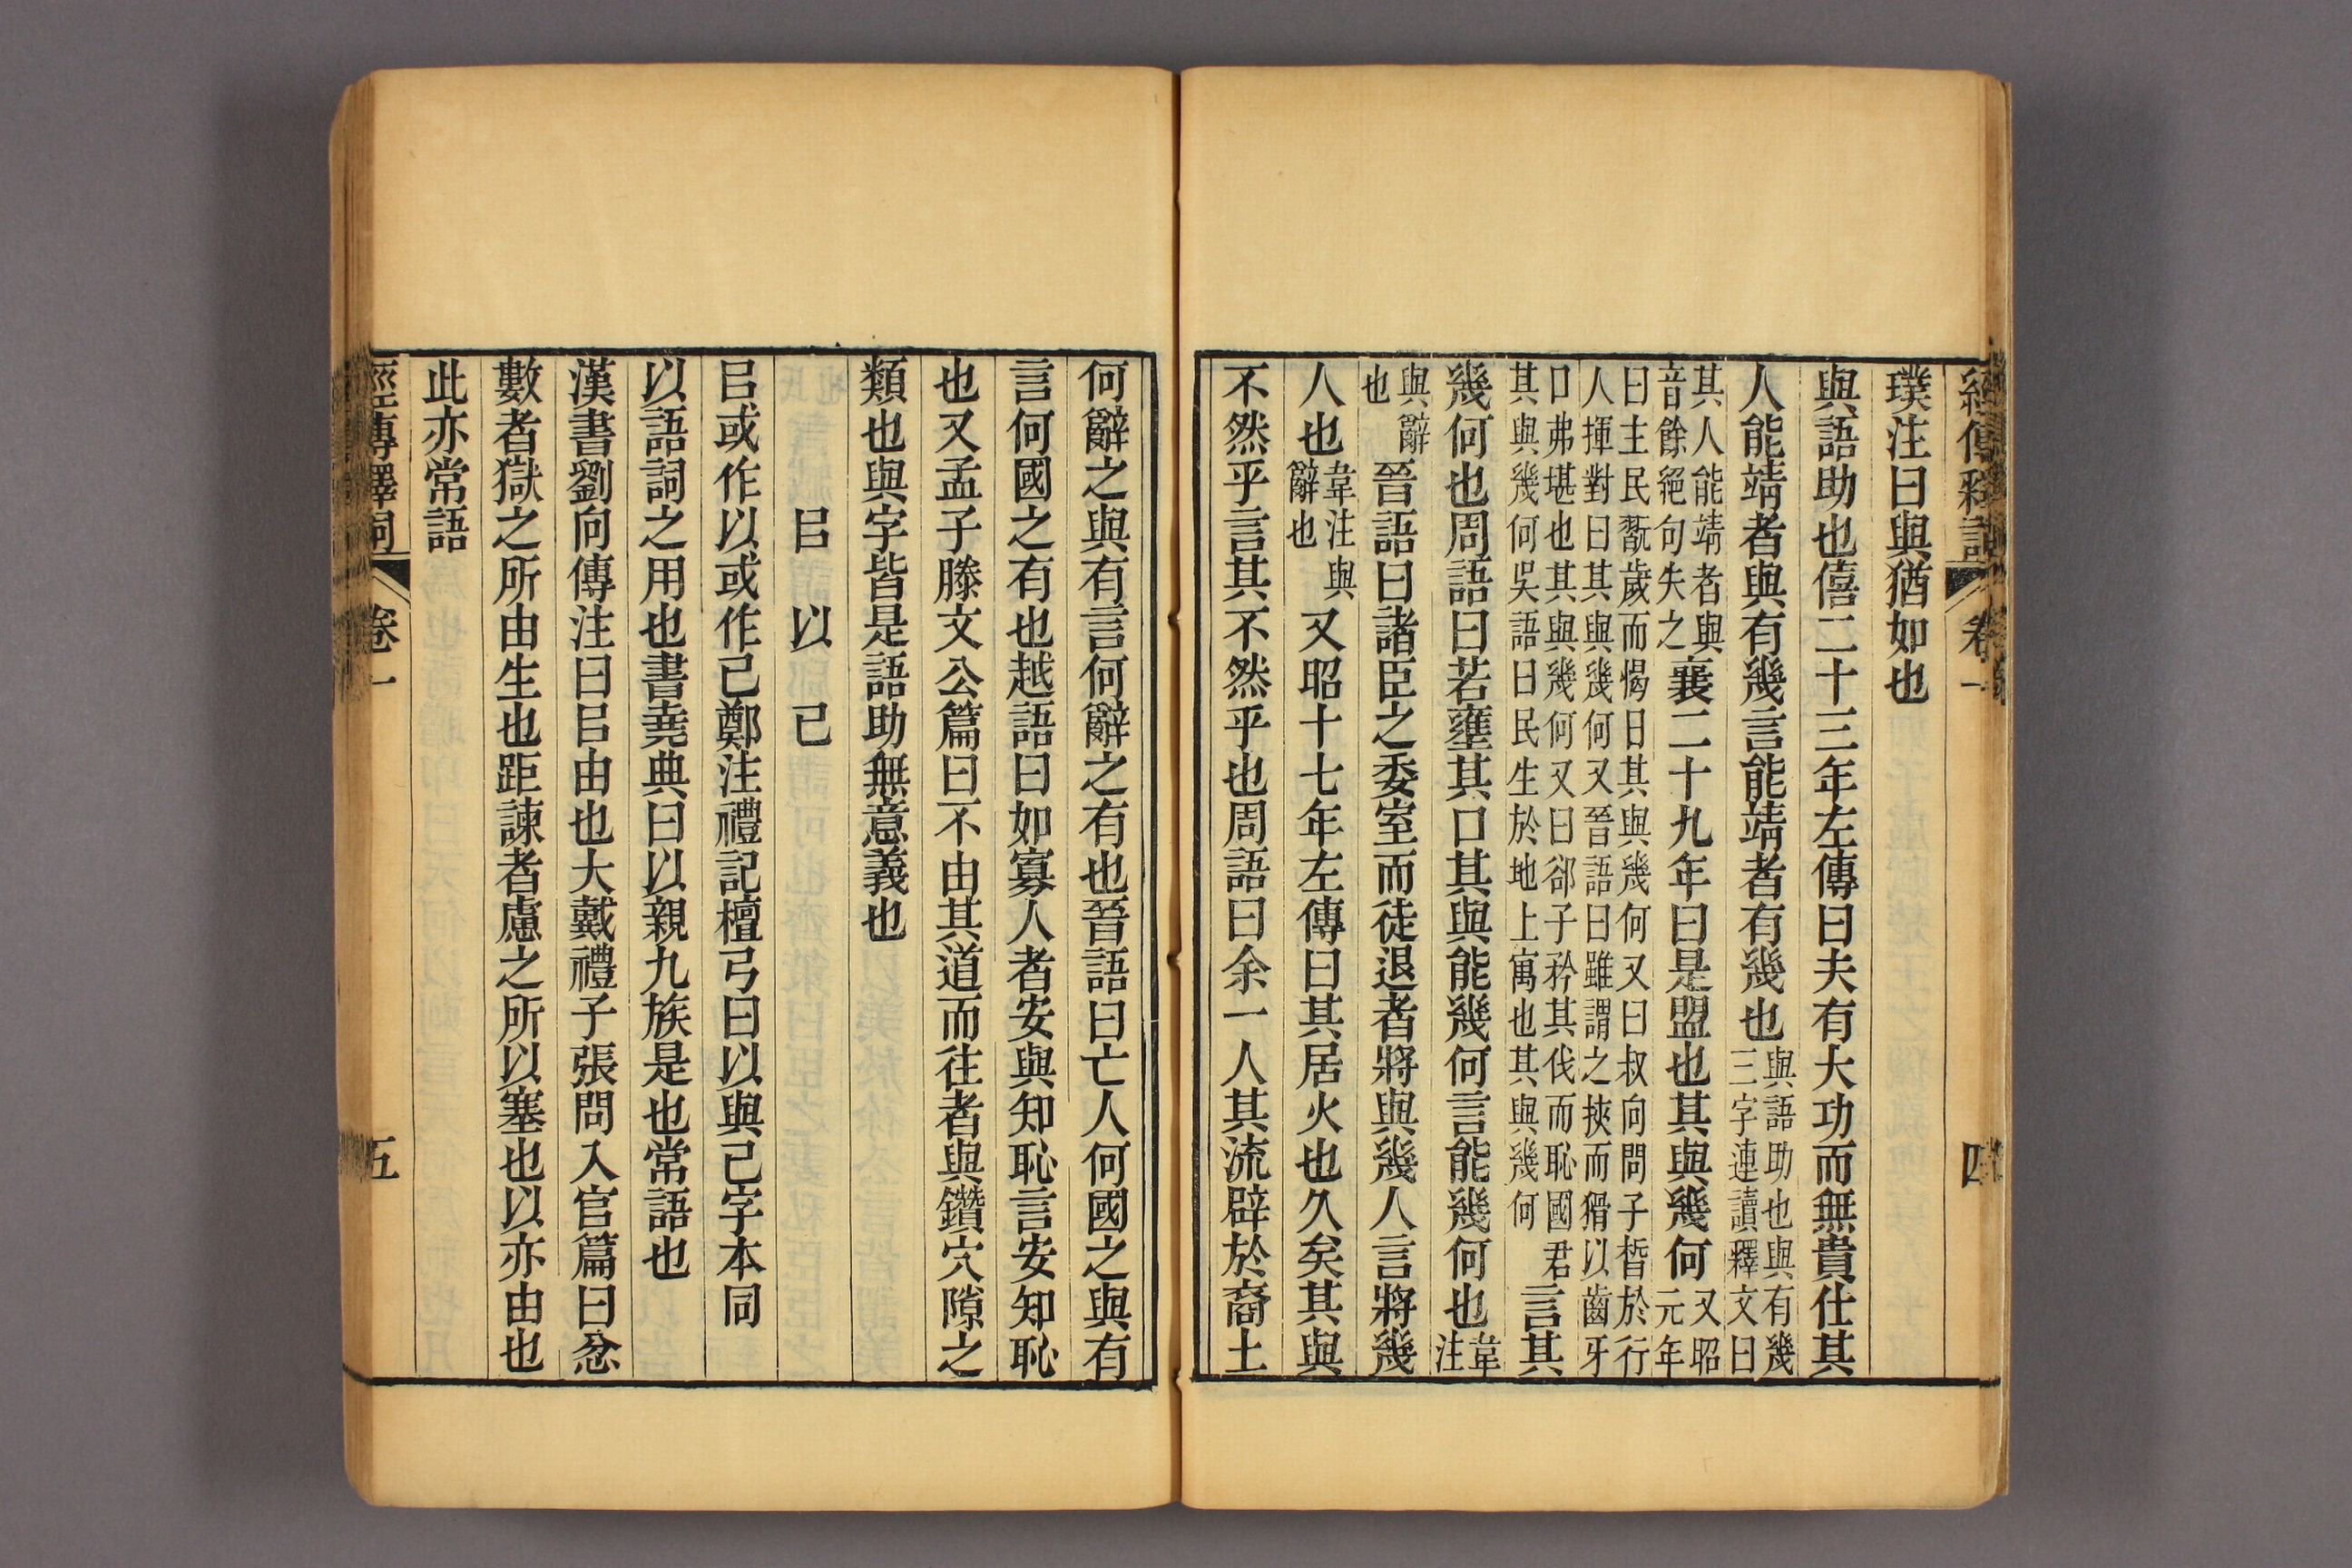 經傳釋詞 卷一 四
璞注曰與猶如也
與語助也僖二十三年左傳曰夫有大功而無貴仕其
人能靖者與有幾言能靖者有幾也與語助也與有幾三字連讀釋文曰
其人能靖者與音餘絕句失之襄二十九年曰是盟也其與幾何又昭元年
曰主民翫歲而愒日其與幾何又曰叔向問子晳於行人揮對曰其與幾何又晉語曰雖謂之挾而猾以齒牙
口弗堪也其與幾何又曰郤子矜其伐而恥國君其與幾何吳語曰民生於地上寓也其與幾何言其
幾何也周語曰若壅其口其與能幾何言能幾何也韋注
與辭也晉語曰諸臣之委室而徒退者將與幾人言將幾
人也韋注與辭也又昭十七年左傳曰其居火也久矣其與
不然乎言其不然乎也周語曰余一人其流辟於裔土
何辭之與有言何辭之有也晉語曰亡人何國之與有
言何國之有也越語曰如寡人者安與知恥言安知恥
也又孟子滕文公篇曰不由其道而往者與鑽穴隙之
類也與字皆是語助無意義也
㠯 以 已
㠯或作以或作已鄭注禮記檀弓曰以與已字本同
以語詞之用也書堯典曰以親九族是也常語也
漢書劉向傳注曰㠯由也大戴禮子張問入官篇曰忿
數者獄之所由生也距諫者慮之所以塞也以亦由也
此亦常語
經傳釋詞 卷一 五